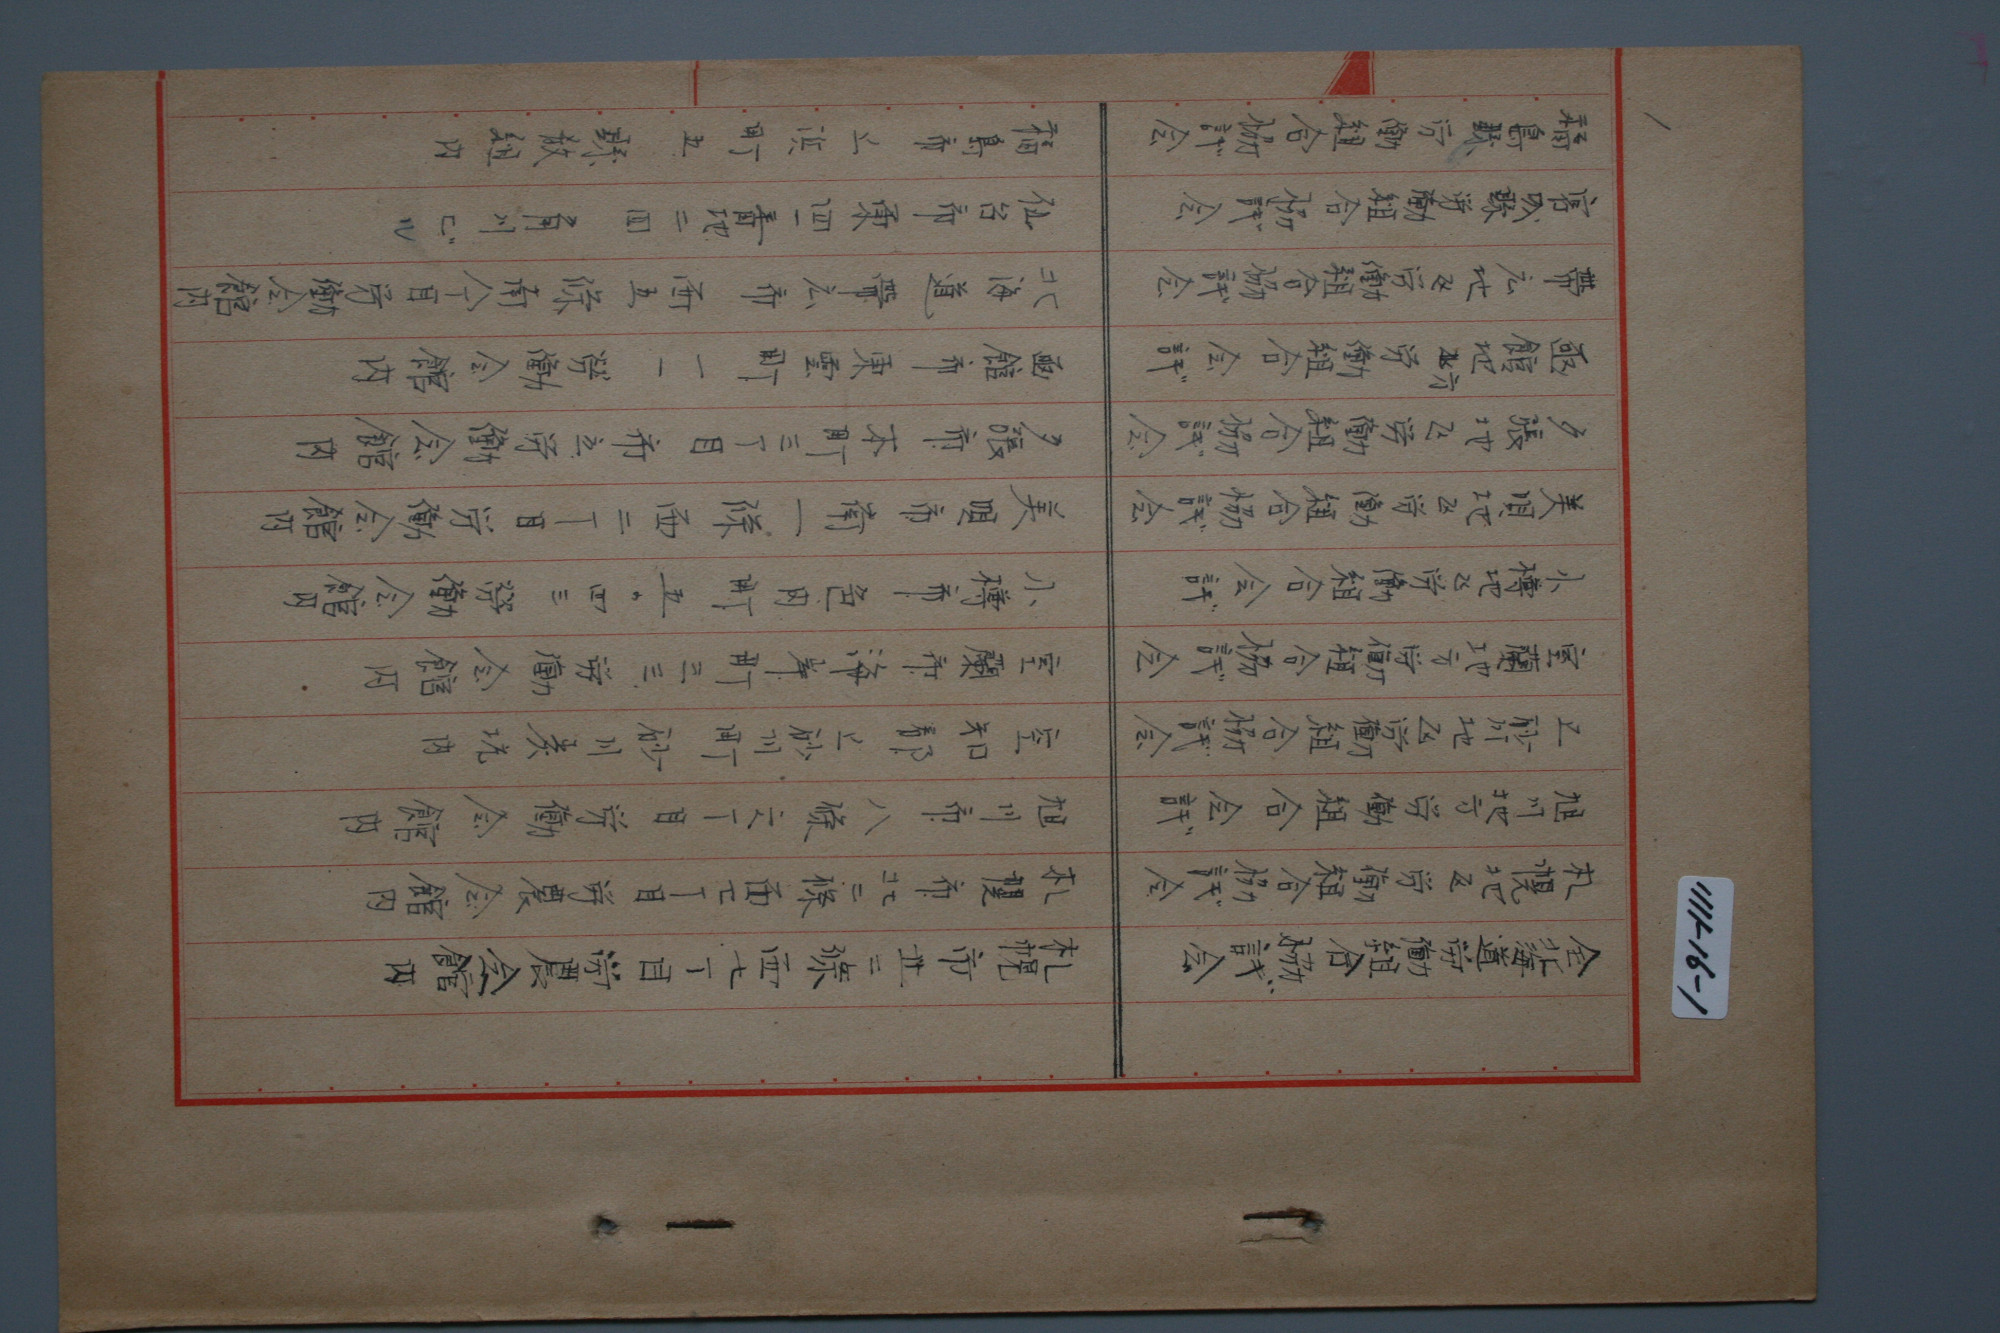 全北海道労働組合協議会 札幌市北二條西七丁目労農会館内
札幌地区労働組合協議会 札幌市北二條西七丁目労農会館内
旭川地方労働組合会議 旭川市八條六丁目労働会館内
上砂川地区労働組合協議会 空知郡上砂川町砂川炭坑内
室蘭地方労働組合協議会 室蘭市海岸町二三労働会館内
小樽地区労働組合会議 小樽市色内町五ノ四三労働会館内
美唄地区労働組合協議会 美唄市南一條西二丁目労働会館内
夕張地区労働組合協議会 夕張市本町三丁目市立労働会館内
函館地方労働組合会議 函館市東雲町一一労働会館内
帯広地区労働組合協議会 北海道帯広市西五條南八丁目労働会館内
宮城縣労働組合協議会 仙台市東四一番地二四角川ビル
福島縣労働組合協議会 福島市上浜町五縣教組内
1111-16-1